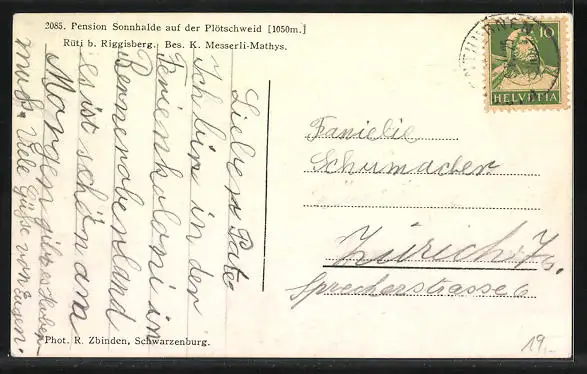 2085. Pension Sonnhalde auf der Plötschweid [1050m.]
Rüti b. Riggisberg. Bes. K. Messerli-Mathys.
Lieber Pate
Ich bin in der
Ferienkoloni im
Berneroberland
es ist schön am
Morgen gibt es Haber-
muß. Viele Grüße von
Eugen.
10
HELVETIA
Familie
Schumacher
Zürich 7/8.
Sprecherstrasse 6
Phot. R. Zbinden, Schwarzenburg.
19.-